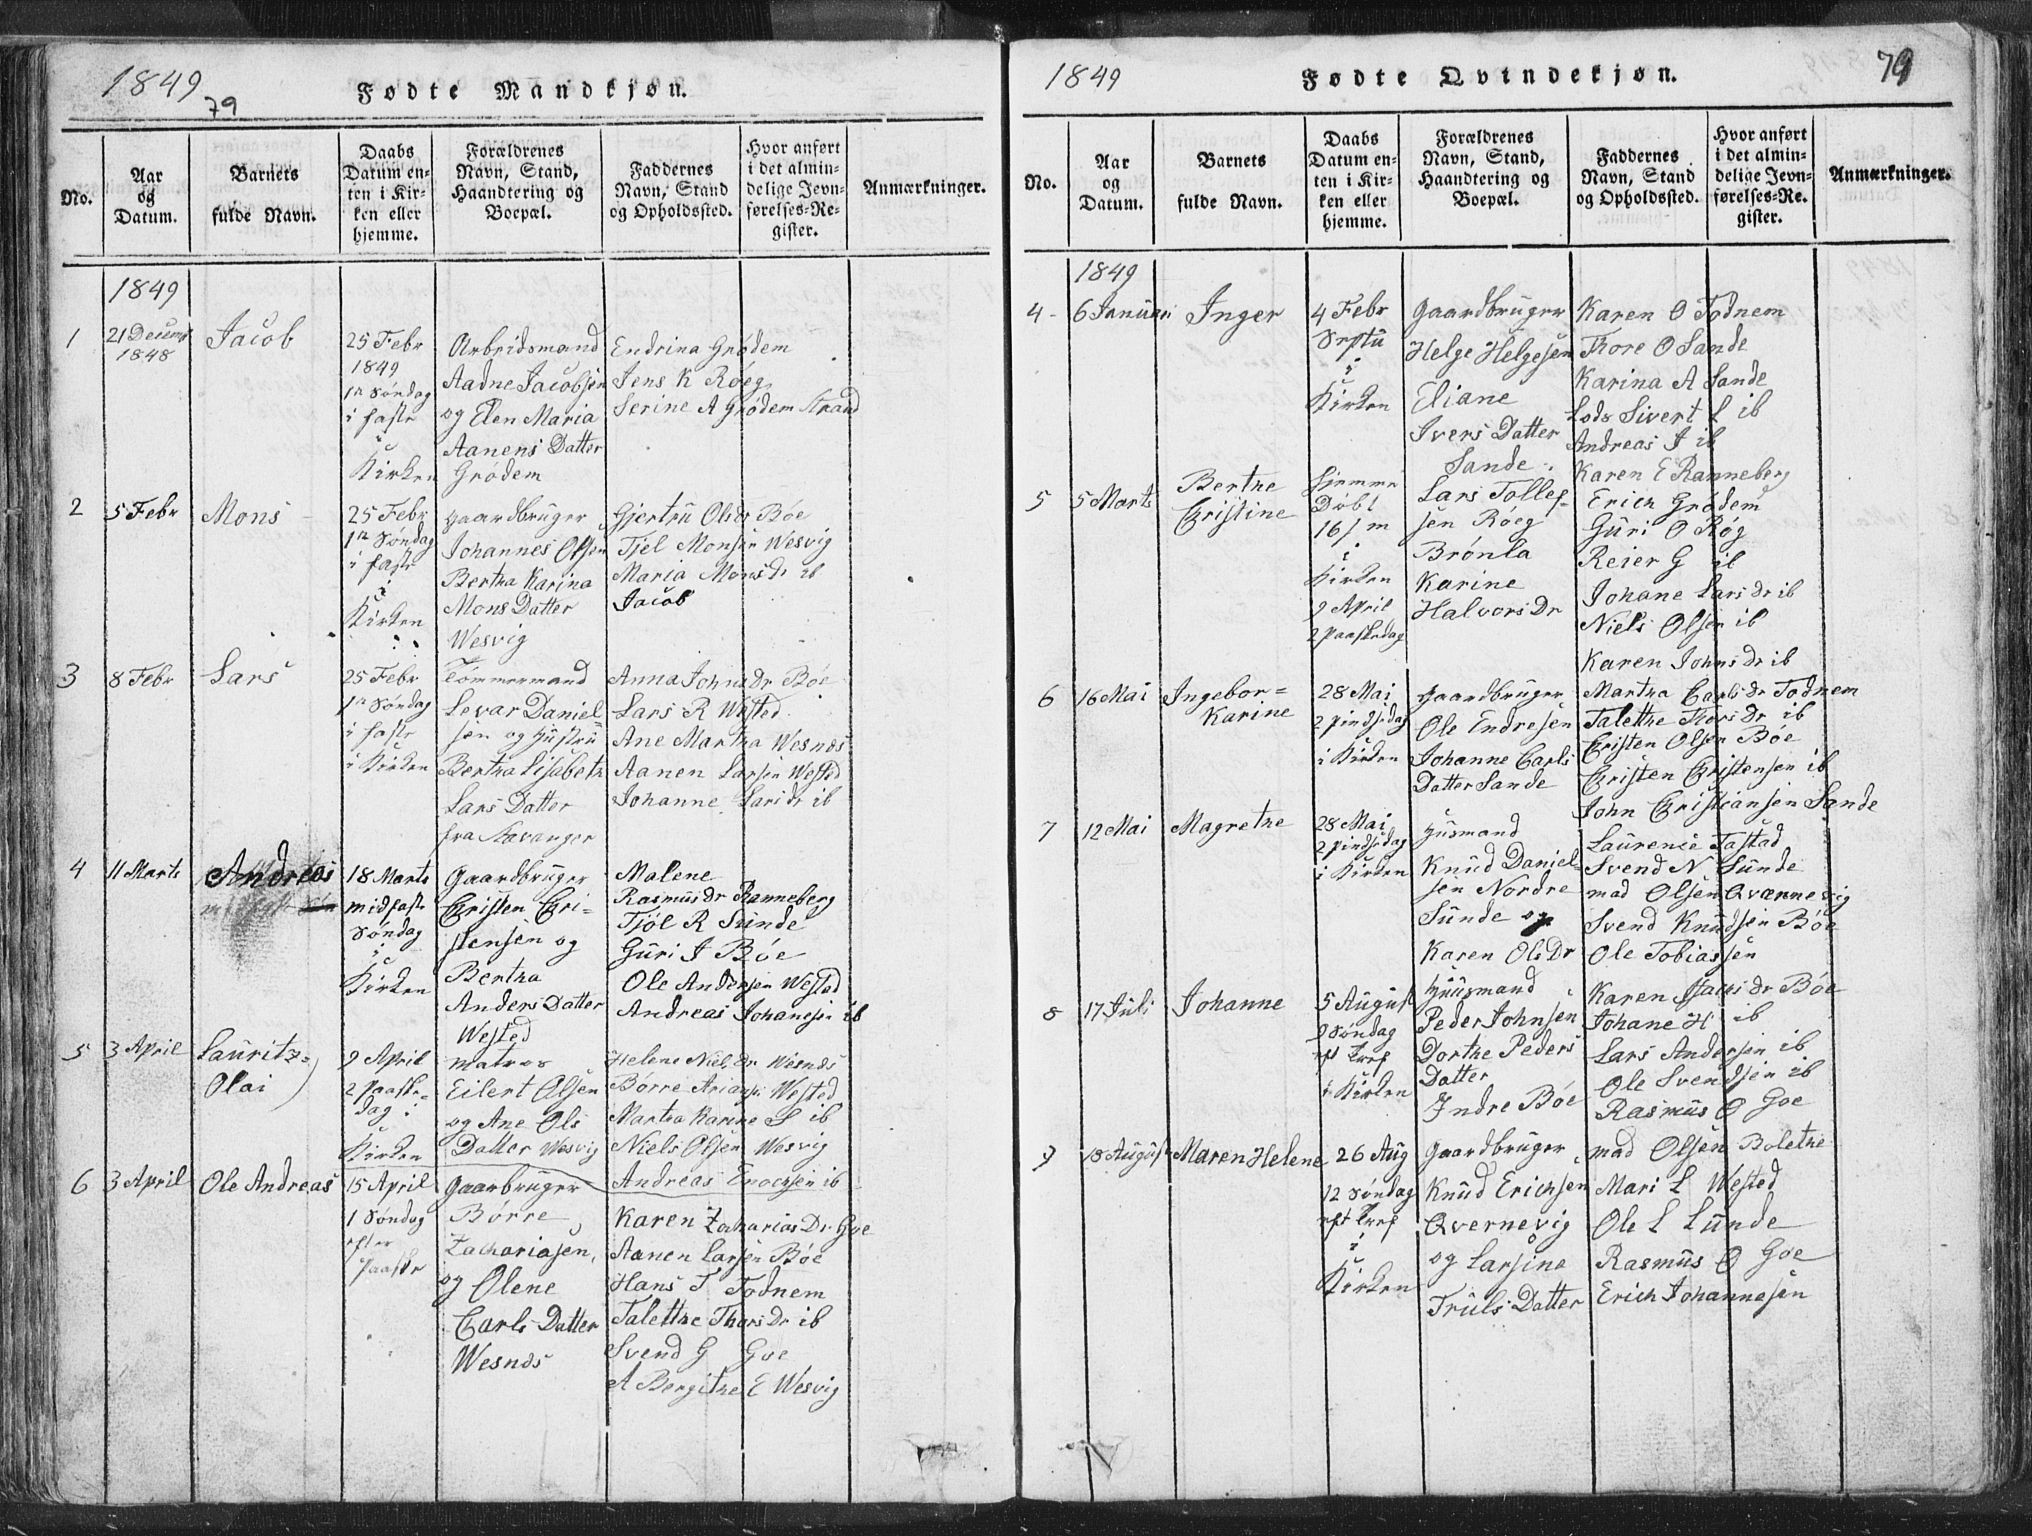 1849
79
Fødte Mandkjøn.
No.
Aar
og
Datum.
Barnets
fulde Navn.
Daabs
Datum en-
ten i Kir-
ken eller
hjemme.
Forældrenes
Navn, Stand,
Haandtering og
Boepæl.
Faddernes
Navn, Stand
og Opholdssted.
Hvor anført
i det almin-
delige Jevn-
førelses-Re-
gister.
Anmærkninger.
1849
1
21 Decemb
1848
Jacob
25 Febr
1849
1n Søndag
i faste
i
Kirken
Arbeidsmand
Aadne Jacobsen
og Elen Maria
Aanens Datter
Grødem
Endrina Grødem
Jens K Røeg
Serine A Grødem Strand
2
5 Febr
Mons
25 Febr
1n Søndag
i faste
i
Kirken
gaardbruger
Johannes Olsen
Bertha Karina
Mons Datter
Wesvig
Gjertru Olsdr Bøe
Tjel Monsen Wesvig
Maria Monsdr ib
Jacob
3
8 Febr
Lars
25 Febr
1n Søndag
i faste
i Kirken
Tømmermand
Levar Daniel
sen og Hustru
Bertha Lisabeth
Lars Datter
fra Stavanger
Anna Johnsdr Bøe
Lars R Wested
Ane Martha Wesnæs
Aanen Larsen Wested
Johanne Larsdr ib
4
11 Marts
Andreas
18 Marts
midfaste
Søndag
i
Kirken
Gaardbruger
Cristen Cri-
stensen og
Bertha
Anders Datter
Wested
Malene
Rasmusdr Ranneberg
Tjøl R Sunde
Guri J Bøe
Ole Andersen Wested
Andreas Johanesen ib
5
3 April
Lauritz=
Olai
9 April
2 Paaske-
dag i
Kirken
Matros
Eilert Olsen
og Ane Ols
Datter Wesvig
Helene Niels Dr Wesnæs
Børre Ariansen Wested
Martha Karine S ib
Niels Olsen Wesvig
Andreas Enochsen ib
6
3 April
Ole Andreas
15 April
1 Søndag
efter
Paaske
Gaarbruger
Børre
Zachariasen,
og Olene
Carls Datter
Wesnæs
Karen Zacharias Dr Goe
Aanen Larsen Bøe
Hans T Todnem
Talethe Thorsdr ib
Svend G Goe
A Bergithe E Wesvig
1849
Fødte Qvindekjøn.
79
No.
Aar
og
Datum.
Barnets
fulde Navn.
Daabs
Datum en-
ten i Kir-
ken eller
hjemme.
Forældrenes
Navn, Stand,
Haandtering og
Boepæl.
Faddernes
Navn, Stand
og Opholdssted.
Hvor anført
i det almin-
delige Jevn-
førelses-Re-
gister.
Anmærkninger.
1849
4 -
6 Januari
Inger
4 Febr
Septu
i
Kirken
Gaardbruger
Helge Helgesen
Eliane
Ivers Datter
Sande
Karen O Todnem
Thore O Sande
Karina A Sande
Lods Sivert L ib
Andreas J ib
5
5 Marts
Berthe
Cristine
Hjemme
Døbt
16/ m
i
Kirken
9 April
2 Paaskedag
Lars Tollef-
sen Røeg
Brønla
Karine
Halvors Dr
Karen E Ranneberg
Erich Grødem
Guri O Røg
Reier G ib
Johane Lars dr ib
Niels Olsen ib
Karen Johns dr ib
6
16 Mai
Ingebor=
Karine
28 Mai
2 pindsedag
i Kirken
Gaardbruger
Ole Endresen
Johanne Carls
Datter Sande
Martha Carls dr Todnem
Talethe Thors dr ib
Cristen Olsen Bøe
Cristen Cristensen ib
John Cristiansen Sande
7
12 Mai
Magrethe
28 Mai
2 pindsedag
i Kirken
Husmand
Knud Daniel-
sen Nordre
Sunde og
Karen Ols Dr
Laurenie Tastad
Svend N Sunde
mad Olsen Qvænnevig
Svend Knudsen Bøe
Ole Tobiassen
8
17 Juli
Johanne
5 August
9 Søndag
eft Tref
i Kirken
Huusmand
Peder Johnsen
Dorthe Peders
Datter
Indre Bøe
Karen Isacs dr Bøe
Johane H ib
Lars Andersen ib
Ole Svendsen ib
Rasmus O Goe
9
18 August
Maren Helene
26 Aug
12 Søndag
eft Tref
i
Kirken
Gaardbruger
Knud Erichsen
Qvernevig
og Larsine
Truls Datter
mad Olsen Bolethe
Mari L Wested
Ole L Sunde
Rasmus O Goe
Erich Johannesen